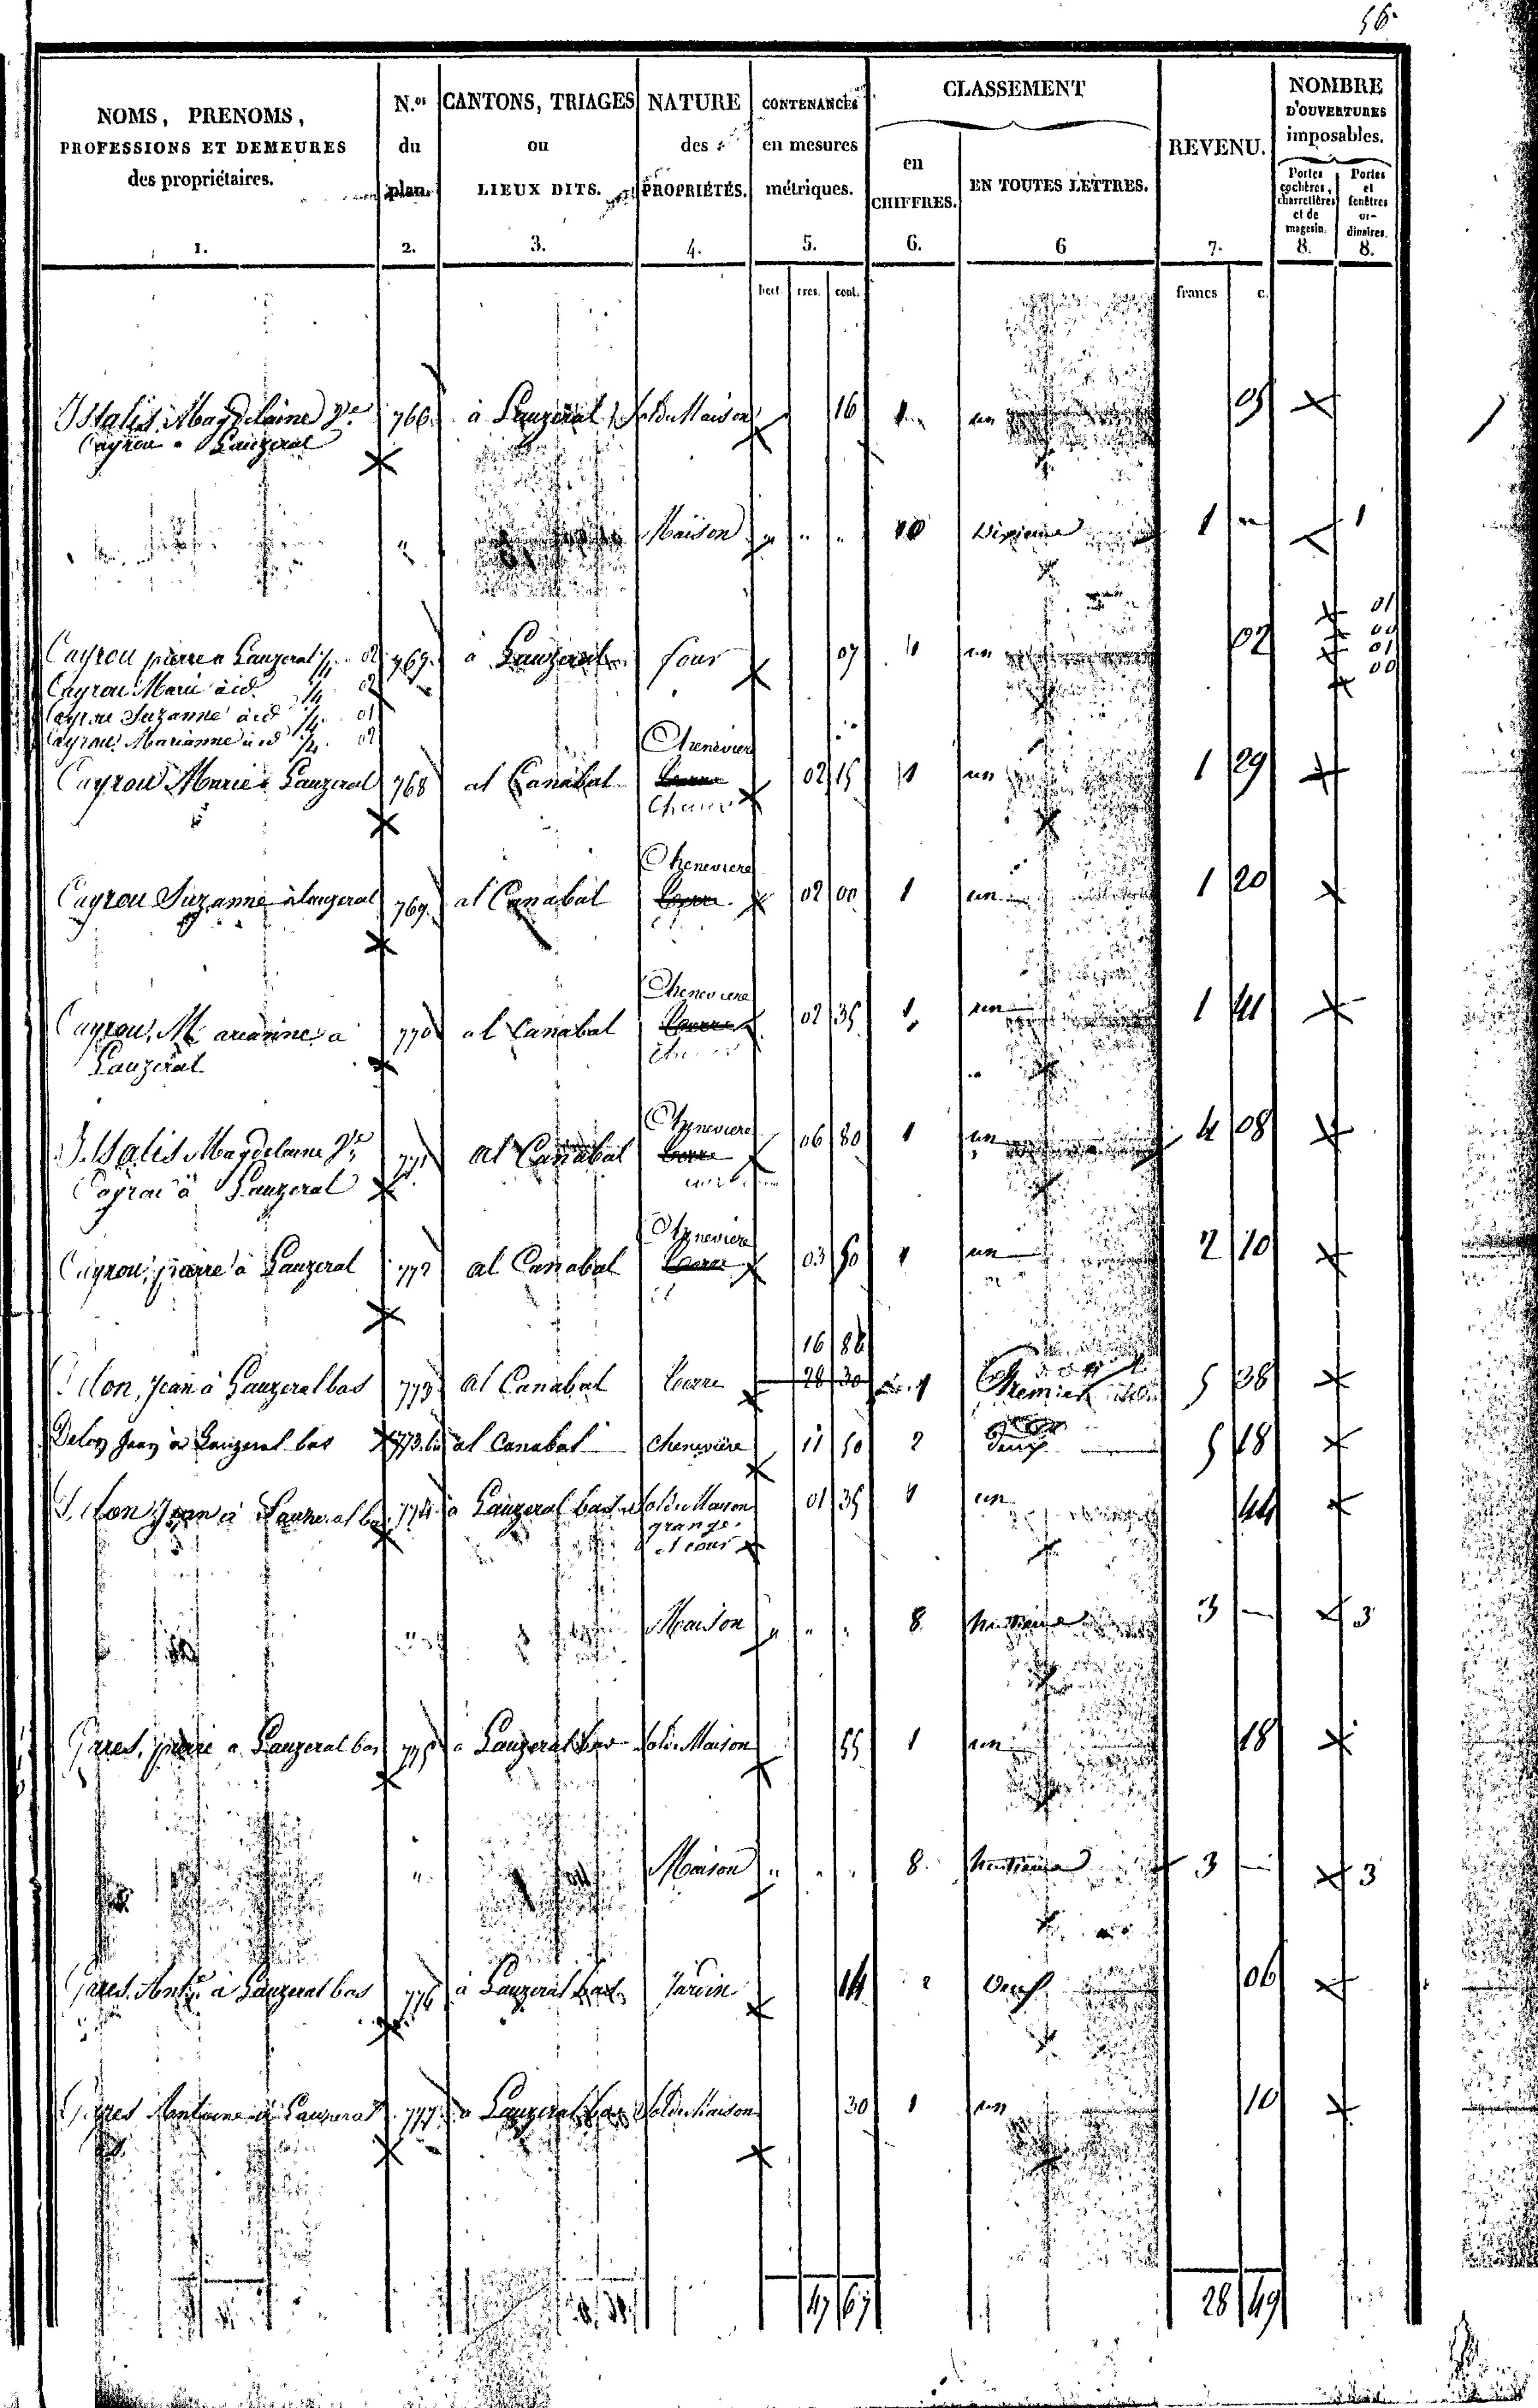 56
NOMS, PRENOMS, PROFESSIONS ET DEMEURES des propriétaires. 1.
N.os du plan. 2.
CANTONS, TRIAGES ou LIEUX DITS. 3.
NATURE des PROPRIÉTÉS. 4.
CONTENANCES en mesures métriques. 5.
CLASSEMENT
en CHIFFRES. 6.
EN TOUTES LETTRES. 6
REVENU. 7.
NOMBRE D'OUVERTURES imposables.
Portes cochères, charretières et de magasin. 8.
Portes et fenêtres ordinaires. 8.
hect. ares. cent. francs c.
Istalis Magdelaine Ve 766 à Lauzeral Sol de Maison 16 1 un 05
Cayrou à Lauzeral
" Maison " " " 10 Dixieme 1 " 1
01
00
01
00
Cayrou pierre a Lauzeral 1/4 02 767 à Lauzeral four 07 1 un 02
Cayrou Marie à id. 1/4 02
Cayrou Suzanne à id 1/4 01
Cayrou Marianne à id 1/4 02
Cheneviere
Cayrou Marie à Lauzeral 768 al Canabal terre 02 15 1 un 1 29
Cheneviere
Cayrou Suzanne à Lauzeral 769 al Canabal terre 02 00 1 un 1 20
Cheneviere
Cayrou, Marianne à 770 al Canabal terre 02 35 1 un 1 41
Lauzeral
Cheneviere
Istalis Magdelaine Ve 771 al Canabal terre 06 80 1 un 4 08
Cayrou à Lauzeral
Cheneviere
Cayrou, pierre à Lauzeral 772 al Canabal terre 03 50 1 un 2 10
16 80
Delon, Jean à Lauzeral bas 773 al Canabal terre 28 30 1 Premiere 5 38
Delon Jean à Lauzeral bas 773 bis al Canabal cheneviere 11 50 2 deux 5 18
Delon Jean à Lauzeral bas 774 à Lauzeral bas Sol de Maison 01 35 1 un 44
grange
et cour
" Maison " " " 8 huitieme 3 — 3
Gares, pierre a Lauzeral bas 775 a Lauzeral bas Sol de Maison 55 1 un 18
" Maison " " " 8 huitieme 3 — 3
Gares Ant.e à Lauzeral bas 776 à Lauzeral bas Jardin 14 2 Deux 06
Gares Antoine à Lauzeral 777 a Lauzeral bas Sol de Maison 30 1 un 10
47 67 28 49